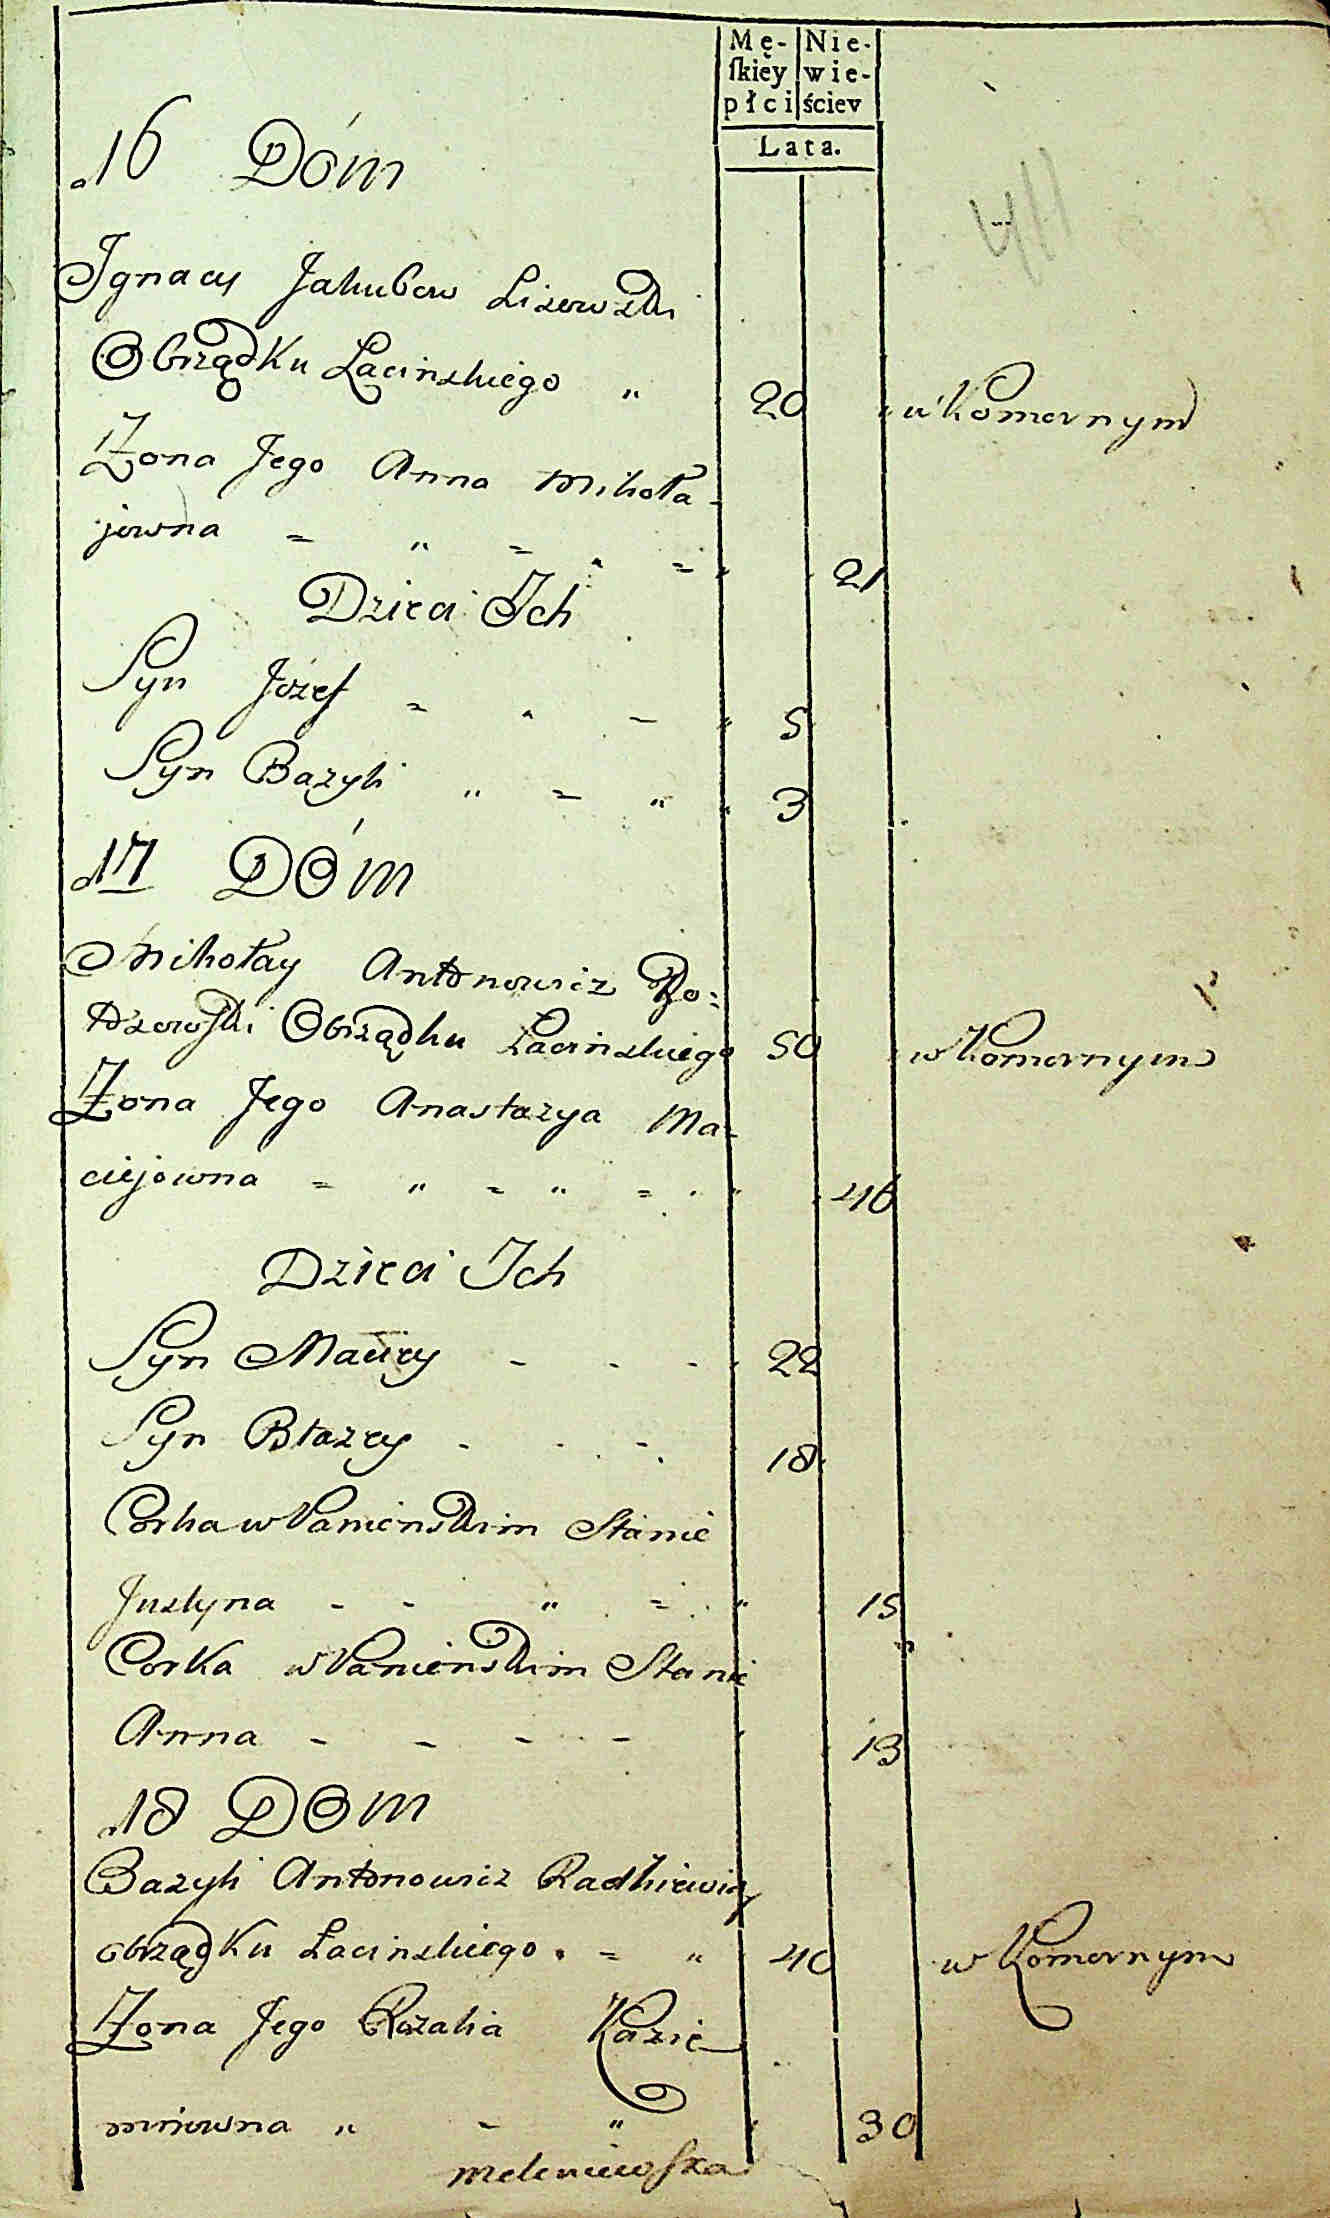 Mę- Nie-
ſkiey wie-
płci ściey
Lata.
16 Dóm
Jgnacy Jakubow Lisowski
Obrządku Łacinskiego " 20 " w Komornym
Żona Jego Anna Mikoła-
jowna = " = " = " 21
Dzieci Jch
Syn Józef = " - " 5
Syn Bazyli " = " " 3
17 DÓm
Mikołay Antonowicz
Obrządku Łacinskiego 50 w Komornym
Żona Jego Anastazya Ma-
ciejowna = " = " = " 46
Dzieci Jch
Syn Maciey - - - 22
Syn Błażey - - - 18
Corka w Panienskim Stanie
Justyna - - " = " 15
Corka w Panienskim Stanie
Anna - - - - 13
18 DOm
Bazyli Antonowicz Radkiewicz
obrządku Łacinskiego . = " 40 w Komornym
Żona Jego Rozalia Kazie
mirowna " - " 30